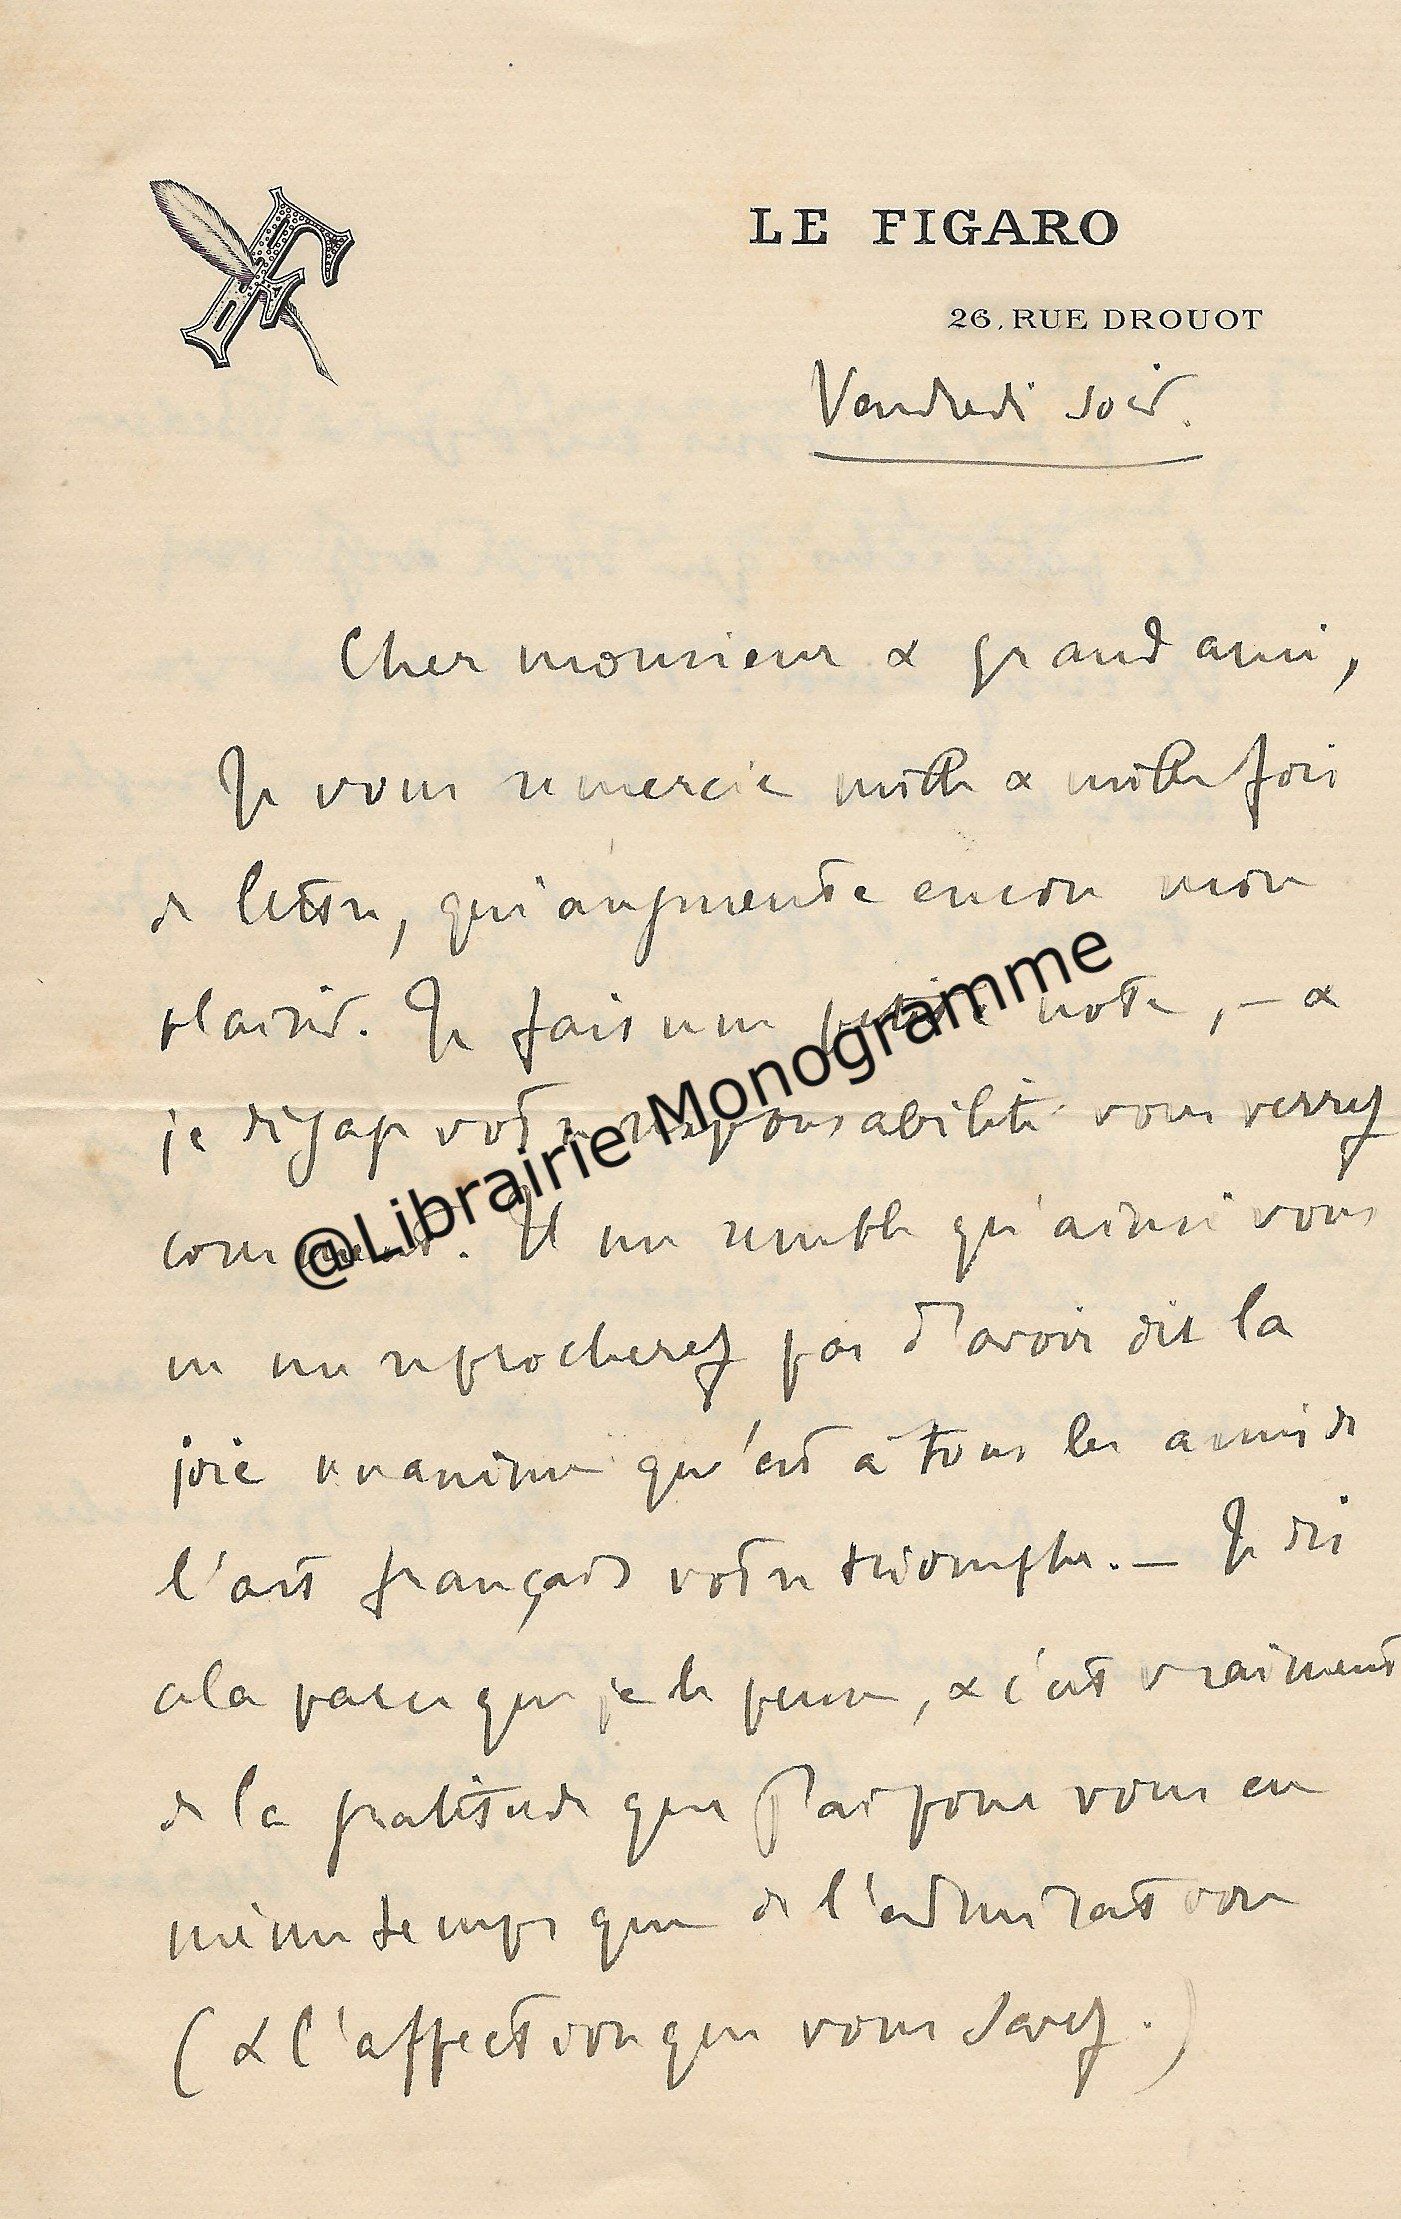 LE FIGARO
26, RUE DROUOT
Vendredi soir.
Cher monsieur & grand ami,
Je vous remercie mille & mille fois
de lettre, qui augmente encore mon
plaisir. Je fais une petite note, – &
je dégage votre responsabilité vous verrez
comment. Il me semble qu'ainsi vous
ne me reprocherez pas d'avoir dit la
joie unanime qu'est à tous les amis de
l'art français votre triomphe. – Je dis
cela parce que je le pense, & c'est vraiment
de la gratitude que j'ai pour vous en
même temps que de l'admiration
(& l'affection que vous savez.)
@Librairie Monogramme